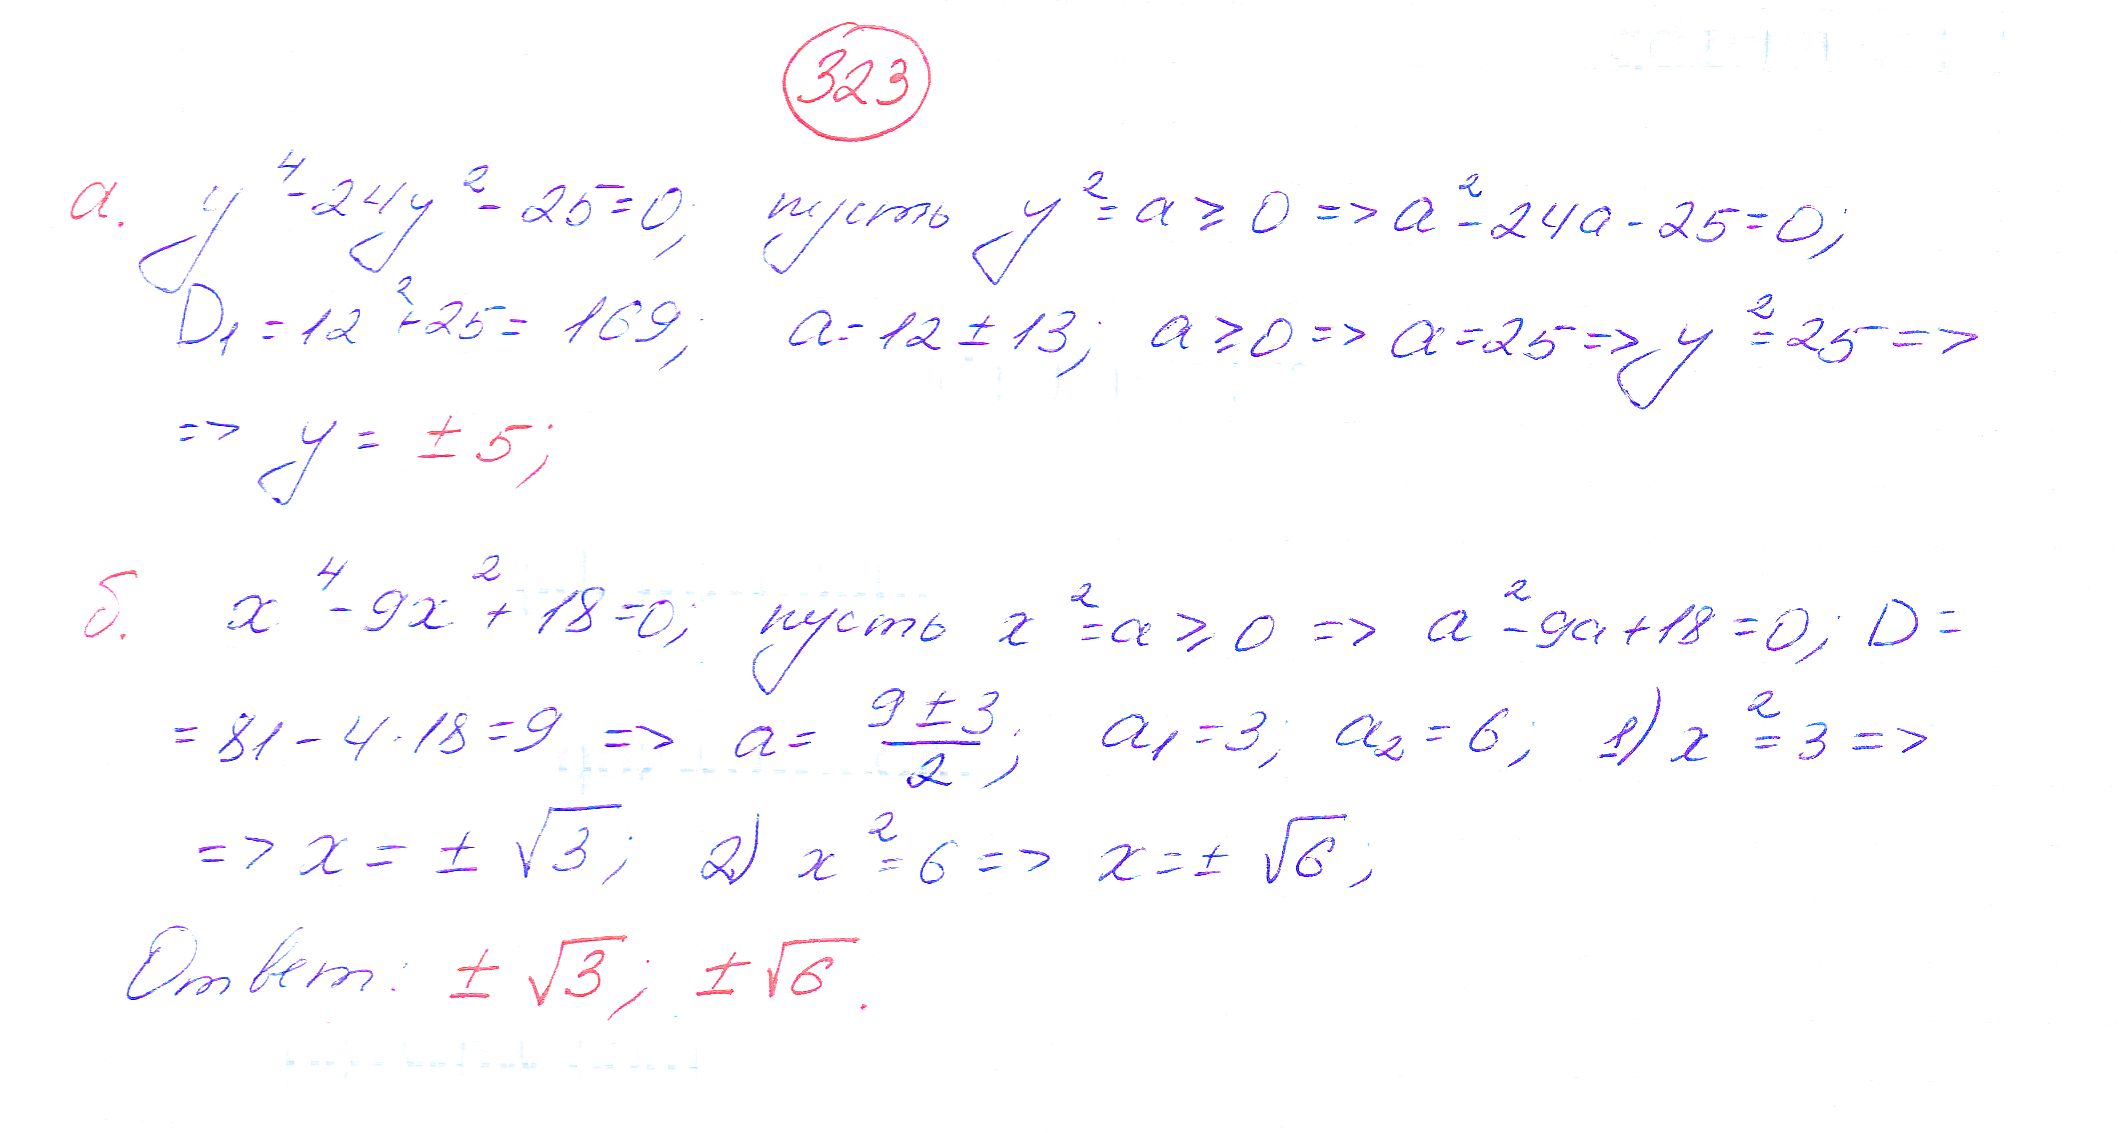 323
а. y⁴-24y²-25=0; пусть y²=a≥0=>a²-24a-25=0;
D₁=12²+25=169; a=12±13; a≥0=>a=25=>y²=25=>
=> y = ±5;
б. x⁴-9x²+18=0; пусть x²=a≥0 => a²-9a+18=0; D=
=81-4·18=9 => a=(9±3)/2; a₁=3; a₂=6; 1) x²=3=>
=> x = ±√3; 2) x²=6=> x=±√6;
Ответ: ±√3; ±√6.